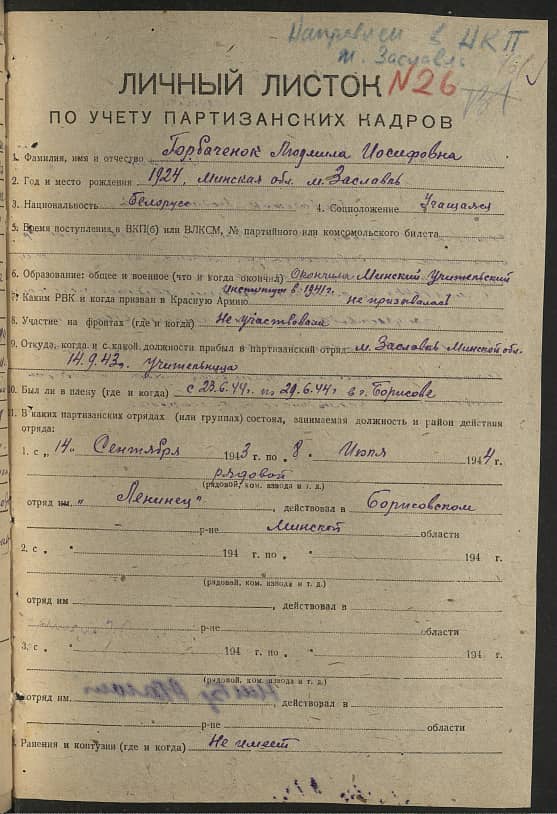 Направлен в НКП
м. Заславль
ЛИЧНЫЙ ЛИСТОК №26
ПО УЧЕТУ ПАРТИЗАНСКИХ КАДРОВ
1. Фамилия, имя и отчество Горбаченок Людмила Иосифовна
2. Год и место рождения 1924, Минская обл. м. Заславль
3. Национальность Белорусс 4. Соцположение Учащаяся
5. Время поступления в ВКП(б) или ВЛКСМ, № партийного или комсомольского билета
6. Образование: общее и военное (что и когда окончил) Окончила Минский Учительский
институт в 1941г.
7. Каким РВК и когда призван в Красную Армию не призывалась
8. Участие на фронтах (где и когда) Не участвовала
9. Откуда, когда и с какой должности прибыл в партизанский отряд м. Заславль Минской обл.
14.9.43г. учительница
10. Был ли в плену (где и когда) с 23.6.44г. по 29.6.44г. в г. Борисове
11. В каких партизанских отрядах (или группах) состоял, занимаемая должность и район действия
отряда:
1. с „ 14 " Сентября 1943 г. по „ 8 " Июля 1944 г.
рядовой
(рядовой, ком. взвода и т. д.)
отряд им. „Ленинец" , действовал в Борисовском
р-не Минской области
2. с „ " 194 г. по „ " 194 г.
(рядовой, ком. взвода и т. д.)
отряд им , действовал в
р-не области
3. с „ " 194 г. по „ " 194 г.
(рядовой, ком. взвода и т. д.)
отряд им. , действовал в
р-не области
Ранения и контузии (где и когда) Не имеет